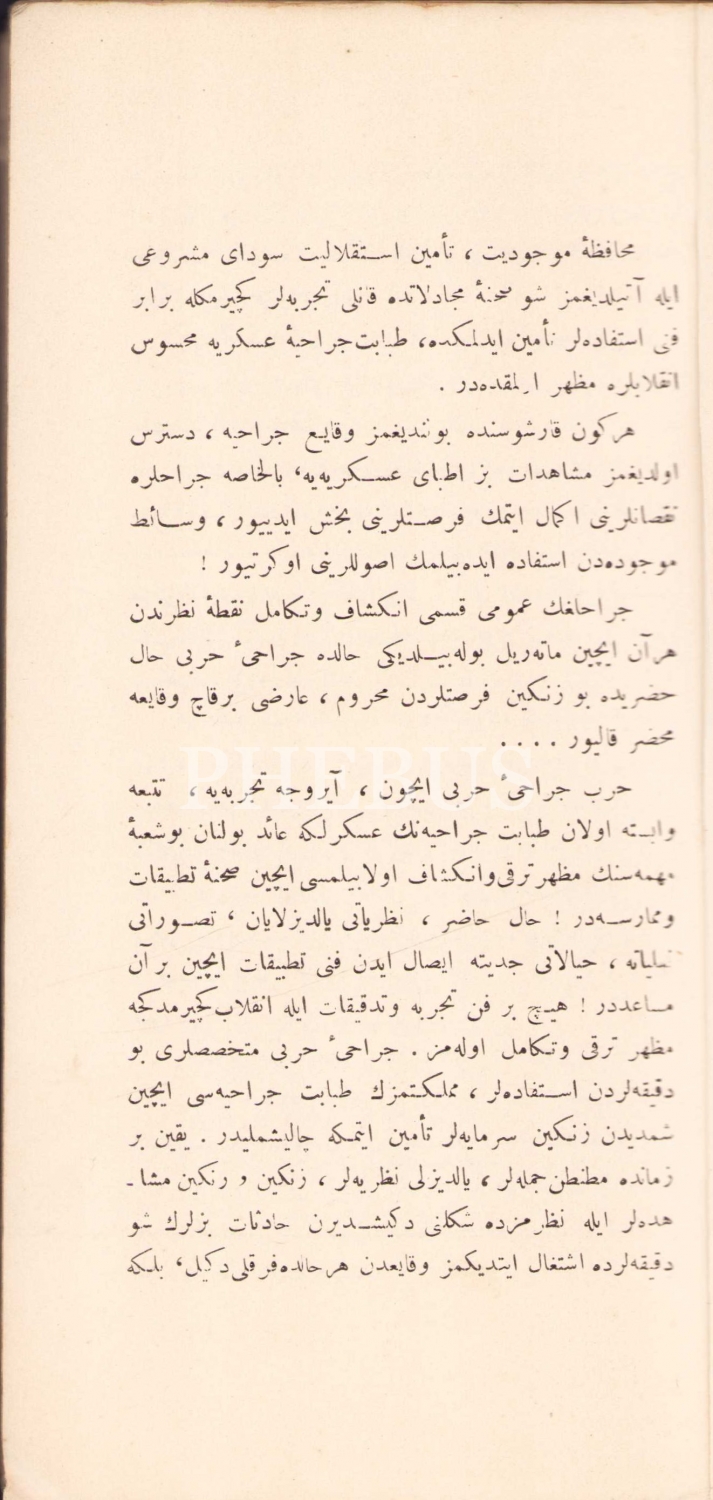 محافظهٔ موجودیت ، تأمین استقلالیت سودای مشروعی
ایله آتیلدیغمز شو صحنهٔ مجادلاتده قانلی تجربه‌لر کچیرمکله برابر
فنی استفاده‌لر تأمین ایدلمکده، طبابت جراحیهٔ عسکریه محسوس
انقلابلره مظهر اولمقده‌در .
هرکون قارشوسنده بولندیغمز وقایع جراحیه ، دسترس
اولدیغمز مشاهدات بز اطبای عسکریه‌یه، بالخاصه جراحلره
نقصانلرینی اکمال ایتمك فرصتلرینی بخش ایدییور ، وسائط
موجوده‌دن استفاده ایده‌بیلمك اصوللرینی اوکرتیور !
جراحلغك عمومی قسمی انکشاف وتکامل نقطهٔ نظرندن
هرآن ایچین ماته‌ریل بوله‌بیلدیکی حالده جراحیٔ حربی حال
حضریده بو زنکین فرصتلردن محروم ، عارضی برقاچ وقایعه
محضر قالیور . . . .
PHEBUS
حرب جراحیٔ حربی ایچون ، آیروجه تجربه‌یه ، تتبعه
وابسته اولان طبابت جراحیه‌نك عسکرلکه عائد بولنان بوشعبهٔ
مهمه‌سنك مظهر ترقی وانکشاف اولابیلمسی ایچین صحنهٔ تطبیقات
وممارسه‌در ! حال حاضر ، نظریاتی یالدیزلایان ، تصوراتی
فعلیاته ، حیالاتی جدیته ایصال ایدن فنی تطبیقات ایچین بر آن
مساعددر ! هیچ بر فن تجربه وتدقیقات ایله انقلاب کچیرمدکجه
مظهر ترقی وتکامل اوله‌مز . جراحیٔ حربی متخصصلری بو
دقیقه‌لردن استفاده‌لر ، مملکتمزك طبابت جراحیه‌سی ایچین
شمدیدن زنکین سرمایه‌لر تأمین ایتمکه چالیشملیدر . یقین بر
زمانده مطنطن جمله‌لر ، یالدیزلی نظریه‌لر ، زنکین و رنکین مشا ـ
هده‌لر ایله نظرمزده شکلنی دکیشدیرن حادثات بزلرك شو
دقیقه‌لرده اشتغال ایتدیکمز وقایعدن هرحالده فرقلی دکیل، بلکه